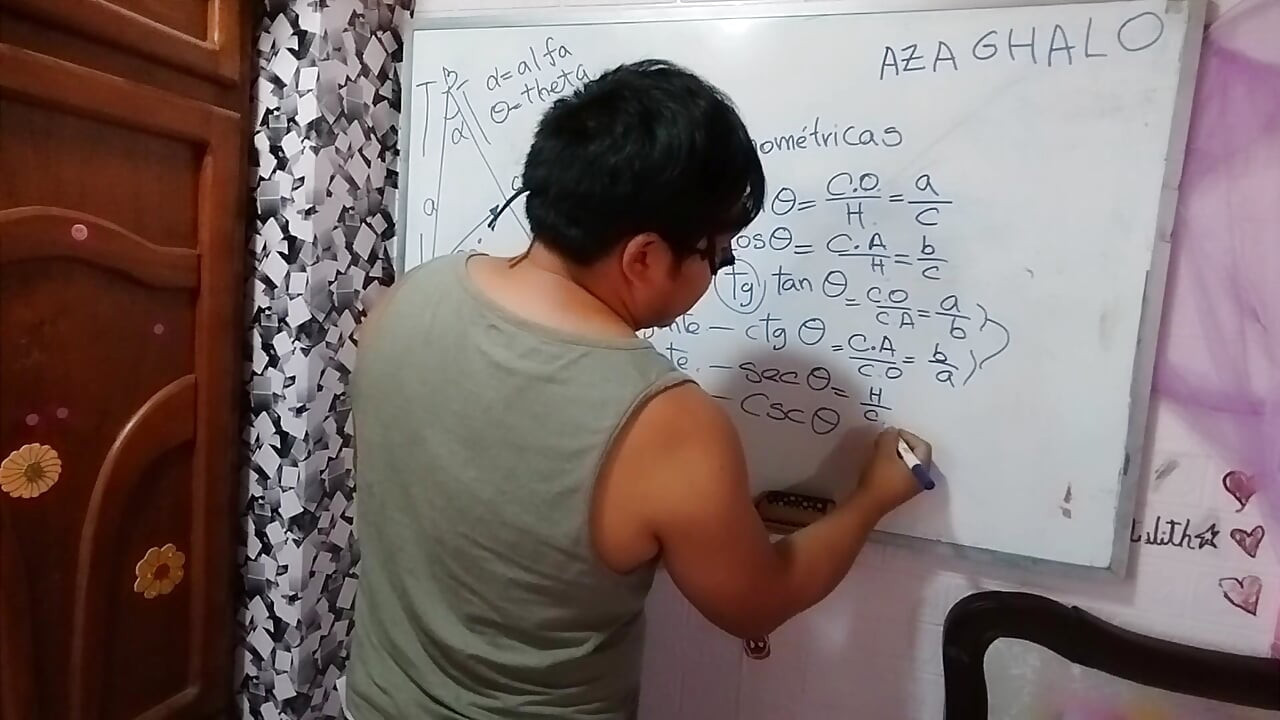 AZAGHALO
α=alfa
θ=theta
B
α
a
nométricas
θ= C.O/H = a/c
cosθ= C.A/H = b/c
tg tan θ = CO/CA = a/b
nte – ctg θ = C.A/C.O = b/a
te. – sec θ = H/C.
– Csc θ
Lilith